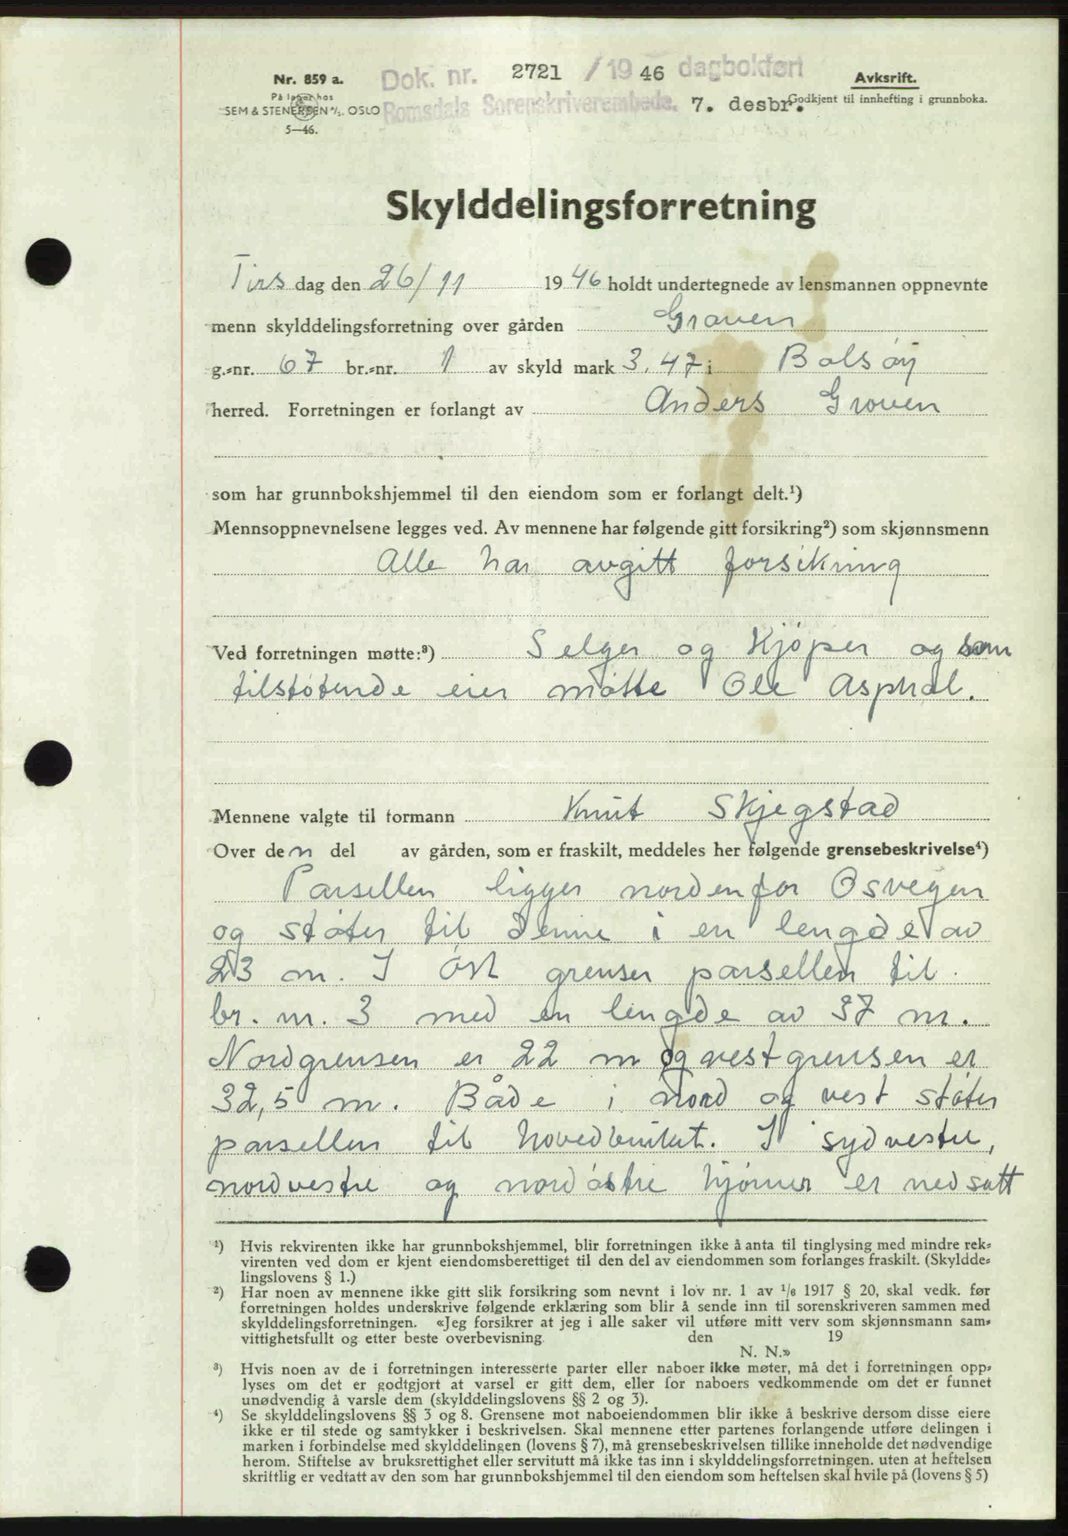 Nr. 859 a.
På lager hos
SEM & STENERSEN A/S. OSLO
5—46.
Dok. nr. 2721 / 19 46 dagbokført
Romsdals Sorenskriverembede. 7. desbr.
Avksrift.
Godkjent til innhefting i grunnboka.
Skylddelingsforretning
Tirs dag den 26/11 1946 holdt undertegnede av lensmannen oppnevnte
menn skylddelingsforretning over gården Graven
g.-nr. 67 br.-nr. 1 av skyld mark 3,47 i Bolsøy
herred. Forretningen er forlangt av Anders Groven
som har grunnbokshjemmel til den eiendom som er forlangt delt.¹)
Mennsoppnevnelsene legges ved. Av mennene har følgende gitt forsikring²) som skjønnsmenn
Alle har avgitt forsikring
Ved forretningen møtte:³) Selger og Kjøper og som
tilstøtende eier møtte Ole Asphol.
Mennene valgte til formann Knut Skjegstad
Over den del av gården, som er fraskilt, meddeles her følgende grensebeskrivelse⁴)
Parsellen ligger nordenfor Osvegen
og støter til denne i en lengde av
23 m. I øst grenser parsellen til
br. nr. 3 med en lengde av 37 m.
Nordgrensen er 22 m og vestgrensen er
32,5 m. Både i nord og vest støter
parsellen til hovedbruket. I sydvestre,
nordvestre og nordøstre hjørner er nedsatt
¹) Hvis rekvirenten ikke har grunnbokshjemmel, blir forretningen ikke å anta til tinglysing med mindre rek-
virenten ved dom er kjent eiendomsberettiget til den del av eiendommen som forlanges fraskilt. (Skyldde-
lingslovens § 1.)
²) Har noen av mennene ikke gitt slik forsikring som nevnt i lov nr. 1 av 1/6 1917 § 20, skal vedk. før
forretningen holdes underskrive følgende erklæring som blir å sende inn til sorenskriveren sammen med
skylddelingsforretningen. «Jeg forsikrer at jeg i alle saker vil utføre mitt verv som skjønnsmann sam-
vittighetsfullt og etter beste overbevisning den 19
N. N.»
³) Hvis noen av de i forretningen interesserte parter eller naboer ikke møter, må det i forretningen opp-
lyses om det er godtgjort at varsel er gitt dem, eller for naboers vedkommende om det er funnet
unødvendig å varsle dem (skylddelingslovens §§ 2 og 3).
⁴) Se skylddelingslovens §§ 3 og 8. Grensene mot naboeiendommen blir ikke å beskrive dersom disse eiere
ikke er til stede og samtykker i beskrivelsen. Skal mennene etter partenes forlangende utføre delingen i
marken i forbindelse med skylddelingen (lovens § 7), må grensebeskrivelsen tillike inneholde det nødvendige
herom. Stiftelse av bruksrettighet eller servitutt må ikke tas inn i skylddelingsforretningen. uten at heftelsen
skriftlig er vedtatt av den som har grunnbokshjemmel til den eiendom som heftelsen skal hvile på (lovens § 5)